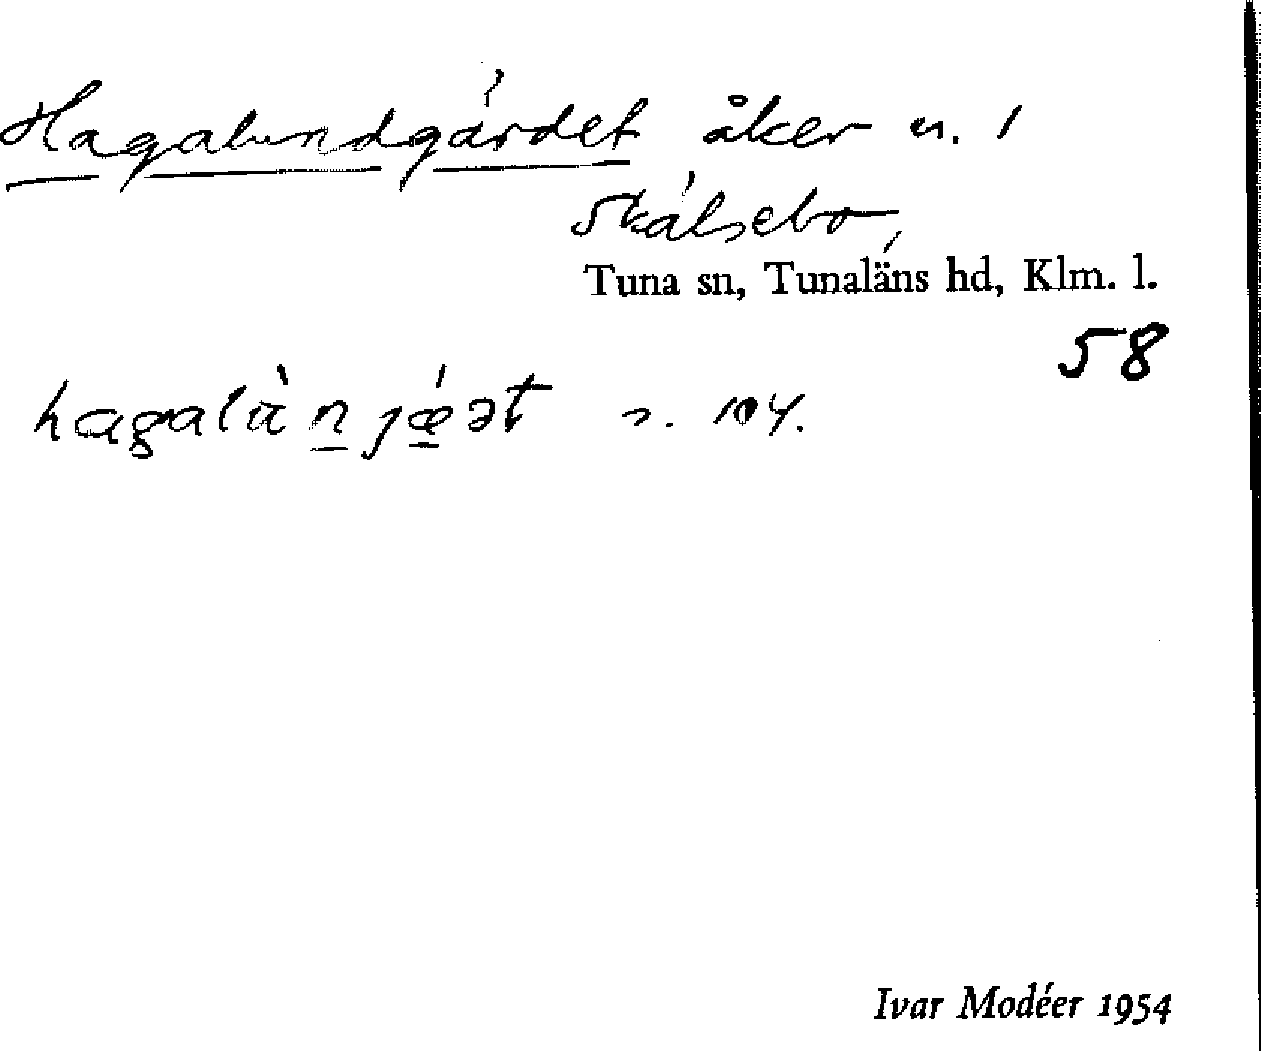 Hagalundgärdet åker n. 1
Skälsebo,
Tuna sn, Tunaläns hd, Klm. l.
58
104.
Ivar Modéer 1954